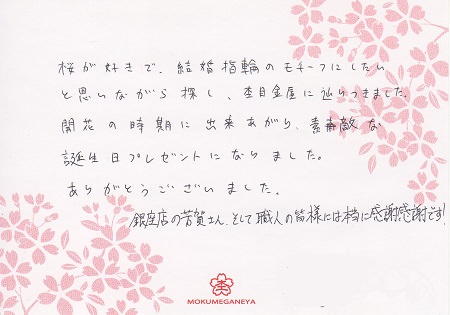 桜が好きで、結婚指輪のモチーフにしたい
と思いながら探し、杢目金屋に辿りつきました。
開花の時期に出来あがり、素敵な
誕生日プレゼントになりました。
ありがとうございました。
銀座店の芳賀さん、そして職人の皆様には本当に感謝感謝です!
杢
MOKUMEGANEYA